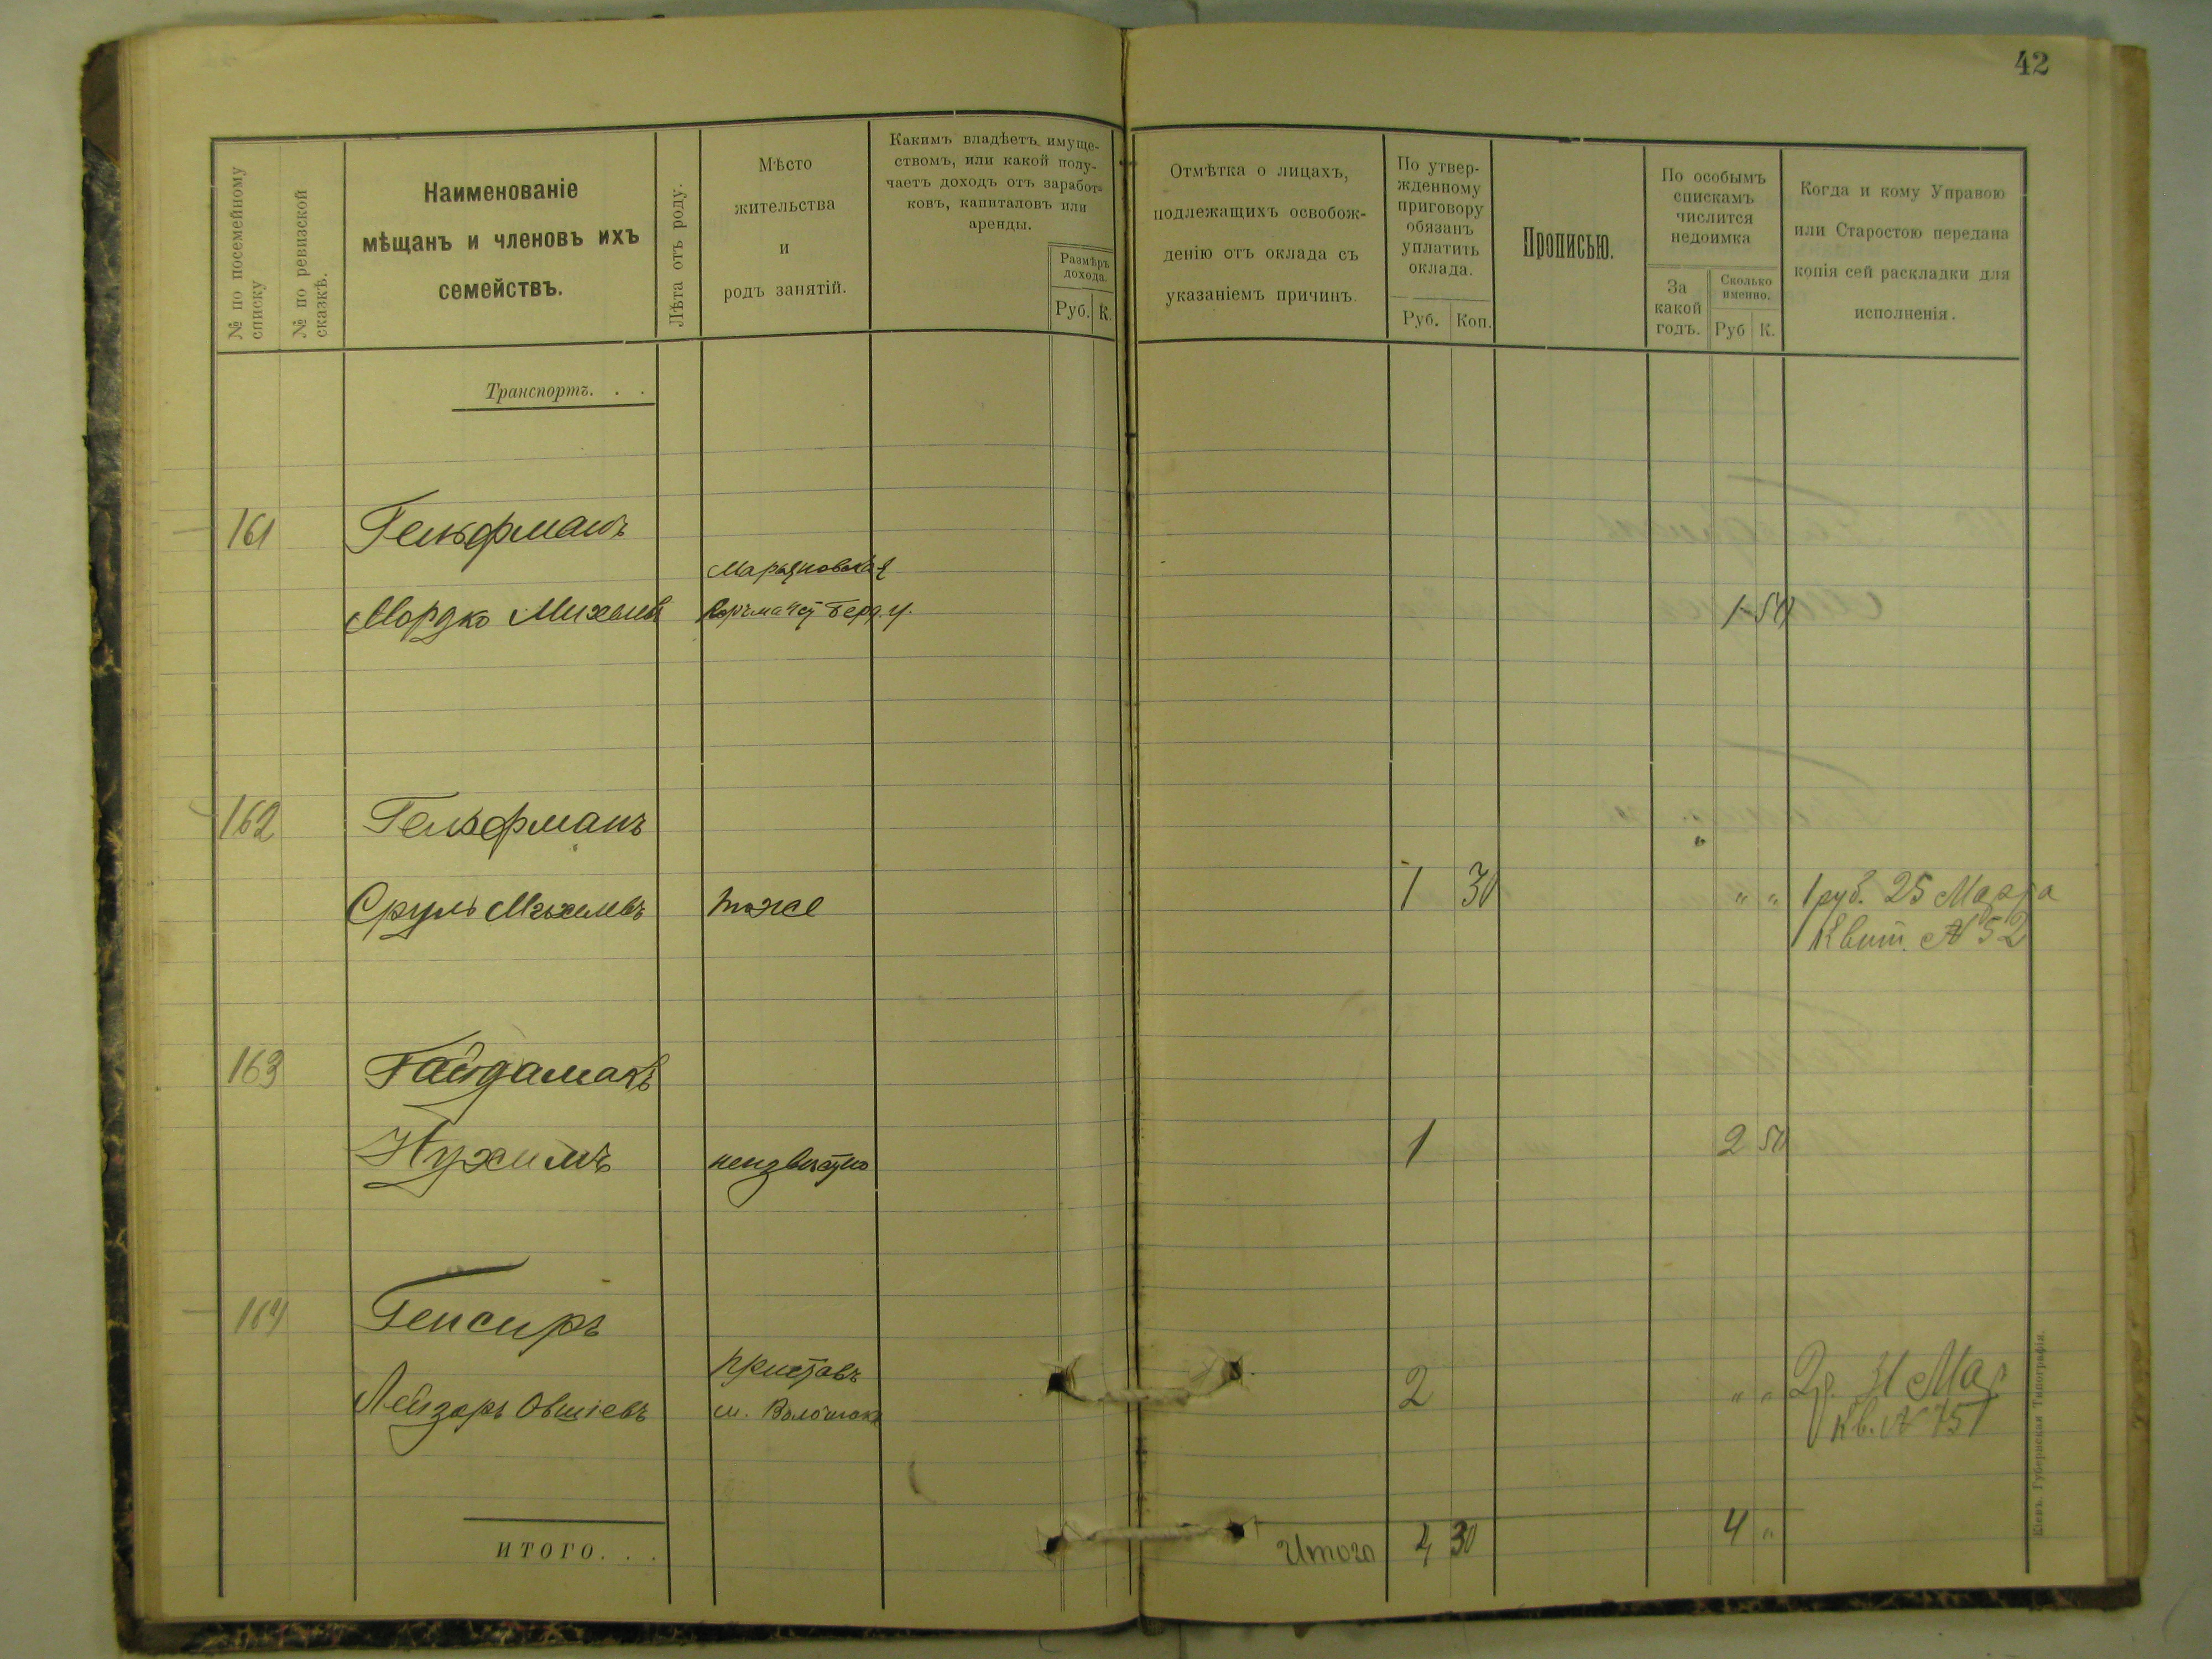 42
№ по посемейному списку
№ по ревизской сказкѣ.
Наименованіе
мѣщанъ и членовъ ихъ
семействъ.
Лѣта отъ роду.
Мѣсто
жительства
и
родъ занятій.
Какимъ владѣетъ имуще-
ствомъ, или какой полу-
чаетъ доходъ отъ заработ-
ковъ, капиталовъ или
аренды.
Размѣръ
дохода.
Руб. К.
Отмѣтка о лицахъ,
подлежащихъ освобож-
денію отъ оклада съ
указаніемъ причинъ.
По утвер-
жденному
приговору
обязанъ
уплатить
оклада.
Руб. Коп.
Прописью.
По особымъ
спискамъ
числится
недоимка
За
какой
годъ.
Сколько
именно.
Руб К.
Когда и кому Управою
или Старостою передана
копія сей раскладки для
исполненія.
Транспортъ. . .
161 Гельфманъ
Марьяновская
Мордко Михелевъ Берд. у. 1 50
162 Гельфманъ
Сруль Михелевъ тоже 1 30 " " 1 руб. 25 Марта
Квит. № 52
163 Гайдамакъ
Нухимъ неизвѣстно 1 2 50
164 Генсиръ
приставъ
Лейзаръ Овшіевъ м. Волочискъ 2 " " 2 р. 31 Мар
Кв. № 751
ИТОГО. . .
Итого 4 30 4 "
Кіевъ. Губернская Типографія.